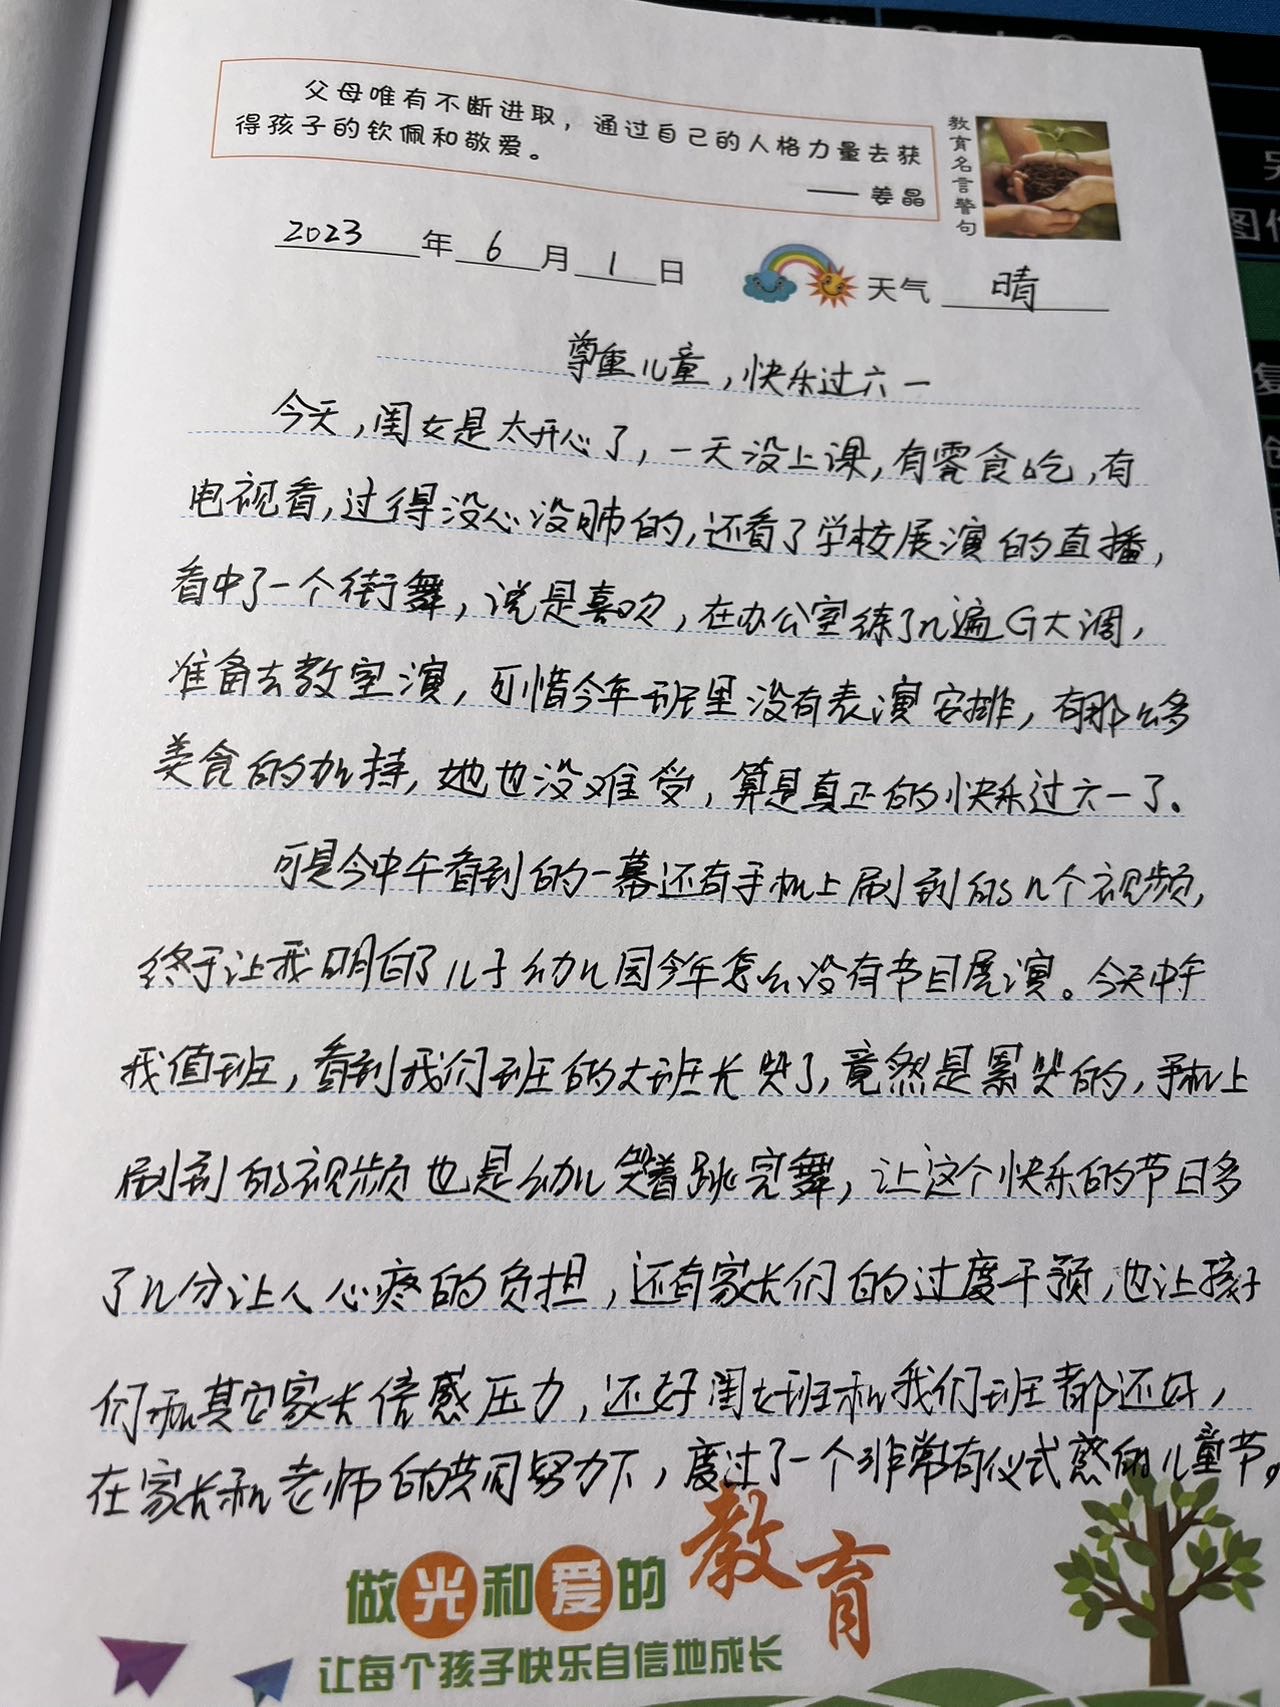 父母唯有不断进取，通过自己的人格力量去获
得孩子的钦佩和敬爱。
—— 姜晶
教育名言警句
2023年6月1日 天气 晴
尊重儿童，快乐过六一
今天，闺女是太开心了，一天没上课，有零食吃，有
电视看，过得没心没肺的，还看了学校展演的直播，
看中了一个街舞，说是喜欢，在办公室练了几遍G大调，
准备去教室演，可惜今年班里没有表演安排，有那么多
美食的加持，她也没难受，算是真正的快乐过六一了。
可是今中午看到的一幕还有手机上刷到的几个视频，
终于让我明白了儿子幼儿园今年怎么没有节目展演。今天中午
我值班，看到我们班的大班长哭了，竟然是累哭的，手机上
刷到的视频也是幼儿哭着跳完舞，让这个快乐的节日多
了几分让人心疼的负担，还有家长们的过度干预，也让孩子
们和其它家长倍感压力，还好闺女班和我们班都还好，
在家长和老师的共同努力下，度过了一个非常有仪式感的儿童节。
做光和爱的教育
让每个孩子快乐自信地成长